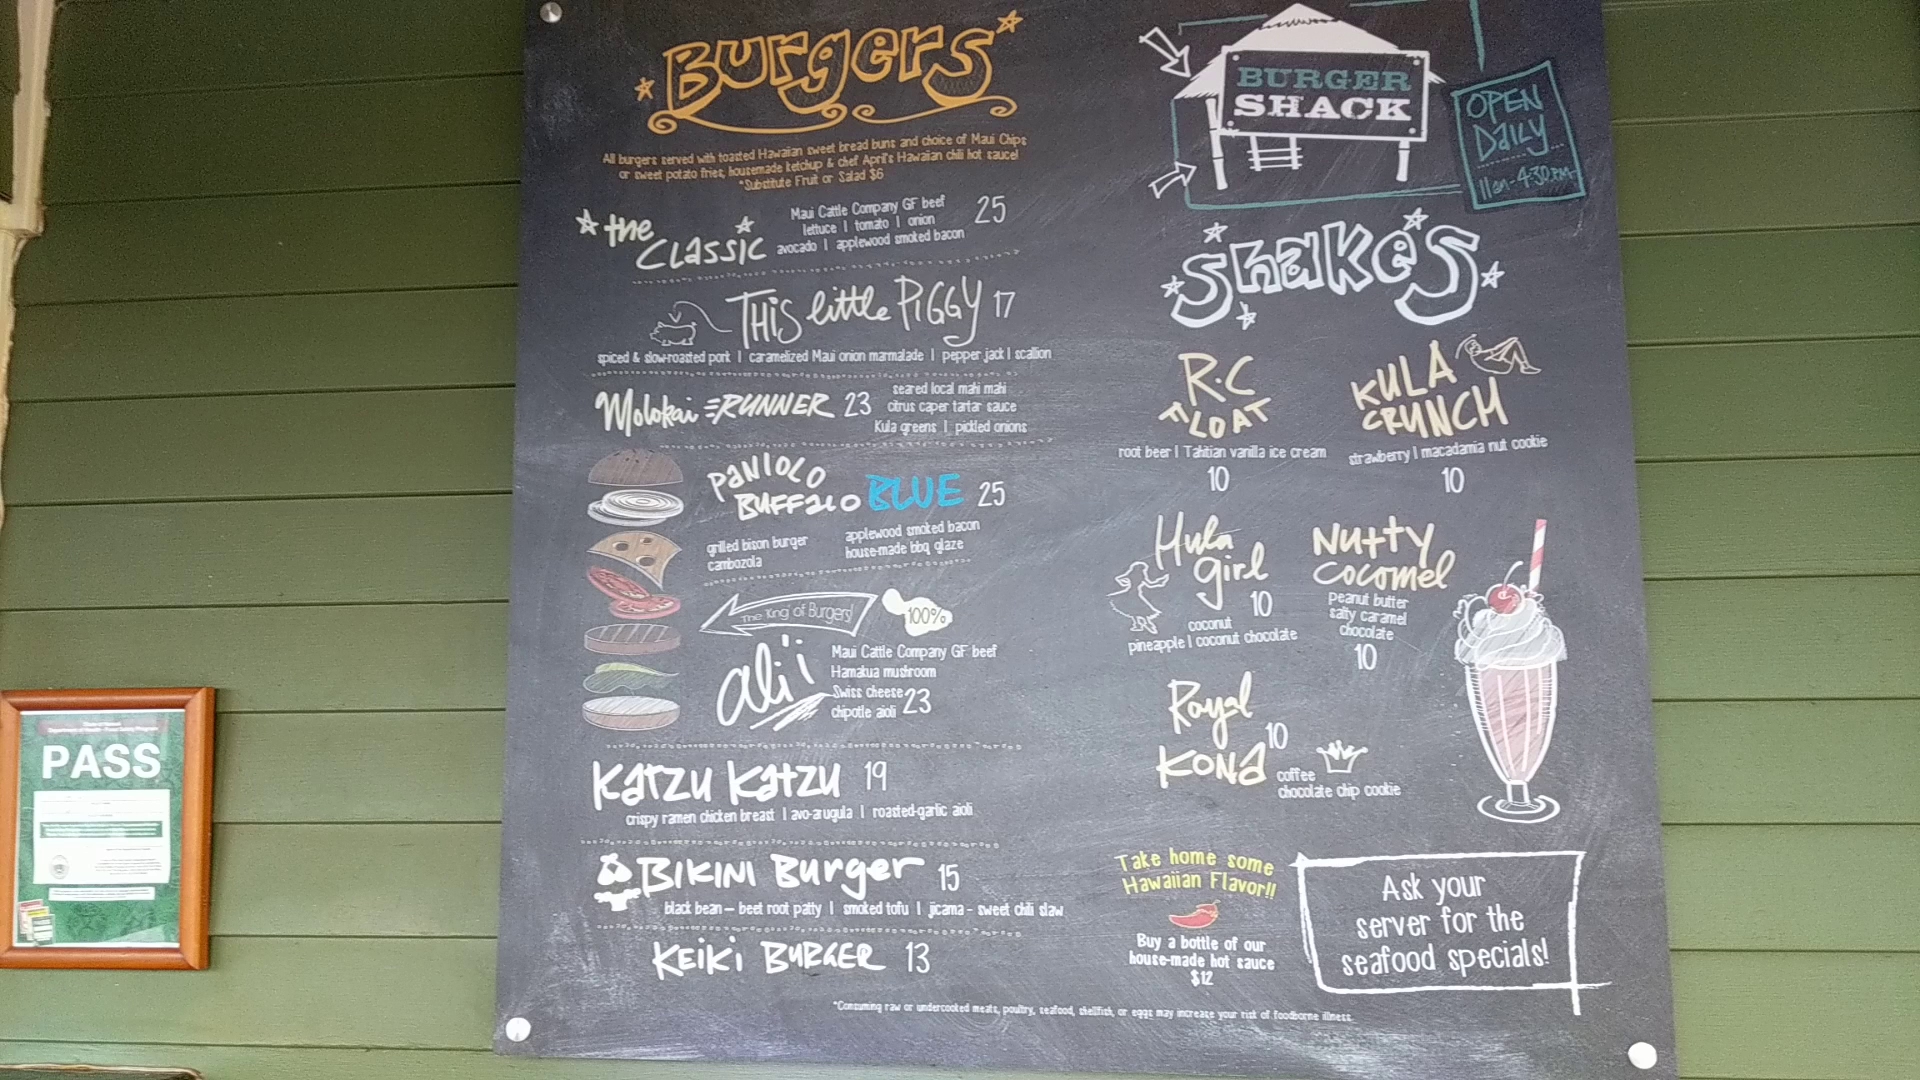 Burgers
All burgers served with toasted Hawaiian sweet bread buns and choice of Maui Chips
or sweet potato fries, housemade ketchup & chef April's Hawaiian chili hot sauce!
*Substitute Fruit or Salad $6
the
CLASSIC
Maui Cattle Company GF beef
lettuce | tomato | onion
avocado | applewood smoked bacon
25
THIS little PIGGY 17
spiced & slow-roasted pork | caramelized Maui onion marmalade | pepper jack | scallion
Molokai RUNNER 23
seared local mahi mahi
citrus caper tartar sauce
Kula greens | pickled onions
PANIOLO
BUFFALO BLUE 25
grilled bison burger
cambozola
applewood smoked bacon
house-made bbq glaze
The 'King' of Burgers!
100%
ali'i
Maui Cattle Company GF beef
Hamakua mushroom
Swiss cheese
chipotle aioli 23
Katzu Katzu 19
crispy ramen chicken breast | avo-arugula | roasted-garlic aioli
BIKINI Burger 15
black bean – beet root patty | smoked tofu | jicama - sweet chili slaw
KEIKI BURGER 13
BURGER
SHACK
OPEN
DAILY
11am-4:30PM
Shakes
R.C
FLOAT
root beer | Tahitian vanilla ice cream
10
KULA
CRUNCH
strawberry | macadamia nut cookie
10
Hula
girl
10
coconut
pineapple | coconut chocolate
Nutty
cocomel
peanut butter
salty caramel
chocolate
10
Royal
KONA
10
coffee
chocolate chip cookie
Take home some
Hawaiian Flavor!!
Buy a bottle of our
house-made hot sauce
$12
Ask your
server for the
seafood specials!
*Consuming raw or undercooked meats, poultry, seafood, shellfish, or eggs may increase your risk of foodborne illness.
PASS